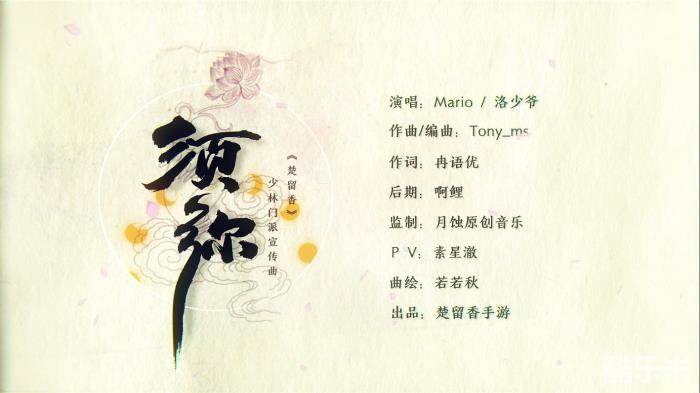 须弥
《楚留香》
少林门派宣传曲
演唱：Mario / 洛少爷
作曲/编曲：Tony_ms
作词：冉语优
后期：啊鲤
监制：月蚀原创音乐
P V：素星澈
曲绘：若若秋
出品：楚留香手游